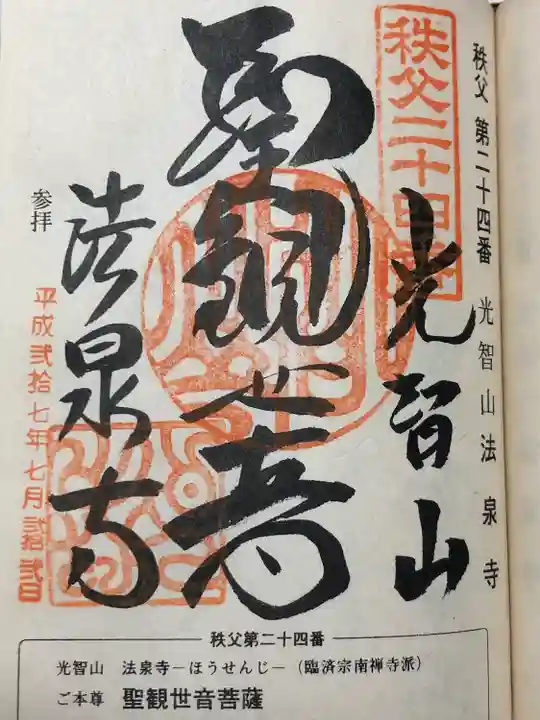 秩父 第二十四番 光智山法泉寺
秩父二十四番
光智山
聖観世音
法泉寺
参拝
平成弐拾七年七月弐拾弐日
秩父第二十四番
光智山 法泉寺－ほうせんじ－（臨済宗南禅寺派）
ご本尊 聖観世音菩薩